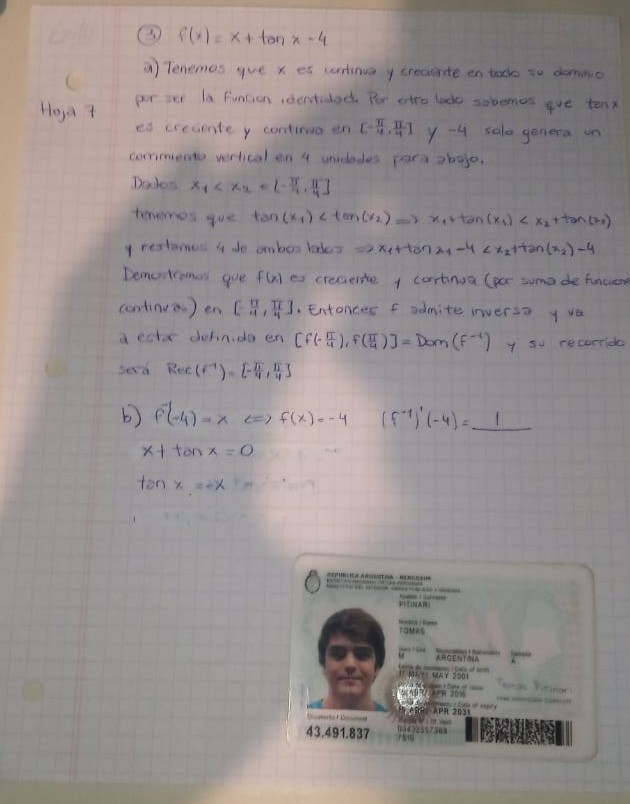 ③ f(x) = x + tan x - 4
a) Tenemos que x es continua y creciente en todo su dominio
Hoja 7
por ser la funcion identidad. Por otro lado sabemos que tan x
es creciente y continua en [-π/4, π/4] y -4 solo genera un
corrimiento vertical en 4 unidades para abajo.
Dados x₁ < x₂ ∈ [-π/4, π/4]
tenemos que tan(x₁) < tan(x₂) => x₁ + tan(x₁) < x₂ + tan(x₂)
y restamos 4 de ambos lados => x₁ + tan x₁ - 4 < x₂ + tan(x₂) - 4
Demostramos que f(x) es creciente y continua (por suma de funciones
continuas) en [-π/4, π/4]. Entonces f admite inversa y va
a estar definida en [f(-π/4), f(π/4)] = Dom(f⁻¹) y su recorrido
será Rec(f⁻¹) = [-π/4, π/4]
b) f⁻¹(-4) = x <=> f(x) = -4 (f⁻¹)'(-4) = 1
x + tan x = 0
tan x = -x
REPUBLICA ARGENTINA - MERCOSUR
Apellido / Surname
PITINARI
Nombre / Name
TOMAS
Sexo / Sex Nacionalidad / Nationality Ejemplar
M ARGENTINA A
Fecha de nacimiento / Date of birth
MAY 2001
Date of issue
APR 2016
Date of expiry
APR 2031
Tomas Pitinari
Documento / Document
43.491.837